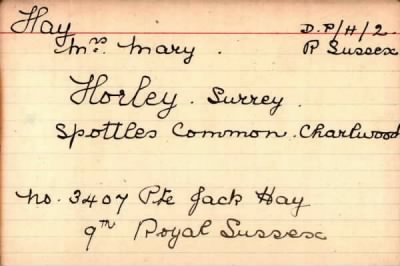 Hay D.P/H/2
Mrs. Mary. R Sussex
Horley. Surrey.
Spottles Common. Charlwood
No. 3407 Pte Jack Hay
9th Royal Sussex